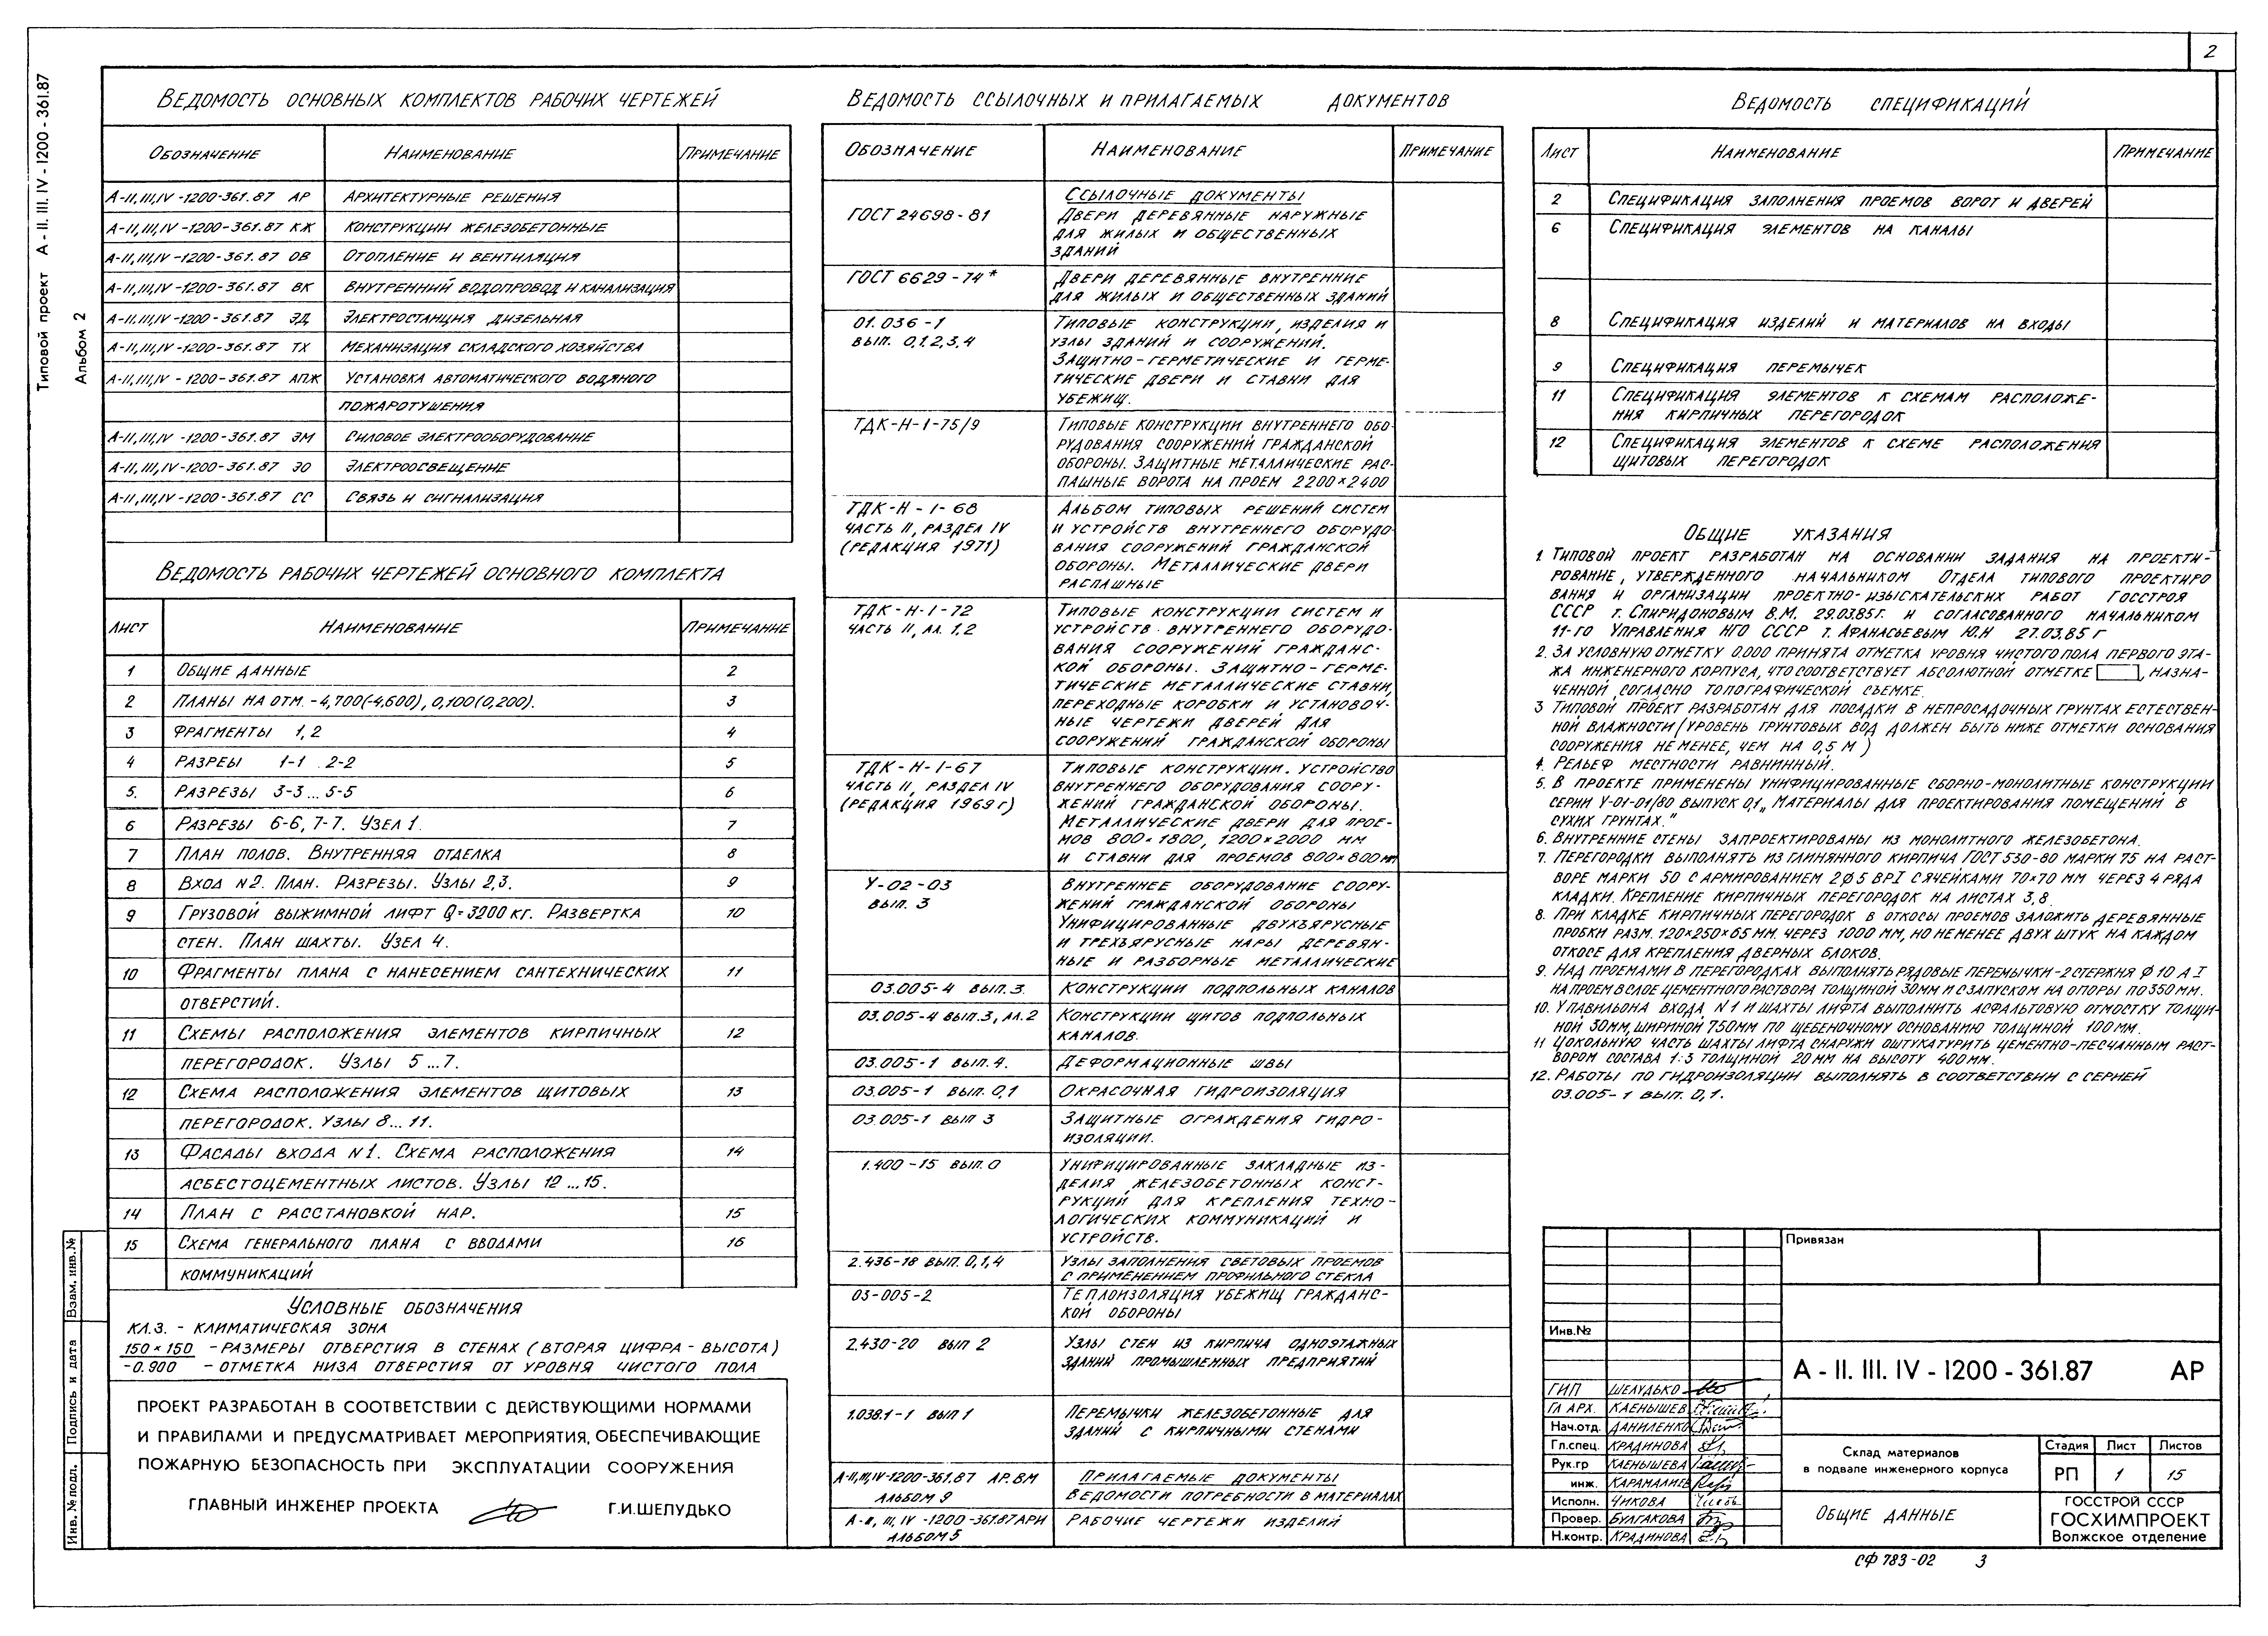 2
Типовой проект А-II.III.IV-1200-361.87
Альбом 2
Ведомость основных комплектов рабочих чертежей
Обозначение Наименование Примечание
А-II,III,IV-1200-361.87 АР Архитектурные решения
А-II,III,IV-1200-361.87 КЖ Конструкции железобетонные
А-II,III,IV-1200-361.87 ОВ Отопление и вентиляция
А-II,III,IV-1200-361.87 ВК Внутренний водопровод и канализация
А-II,III,IV-1200-361.87 ЭД Электростанция дизельная
А-II,III,IV-1200-361.87 ТХ Механизация складского хозяйства
А-II,III,IV-1200-361.87 АПЖ Установка автоматического водяного
пожаротушения
А-II,III,IV-1200-361.87 ЭМ Силовое электрооборудование
А-II,III,IV-1200-361.87 ЭО Электроосвещение
А-II,III,IV-1200-361.87 СС Связь и сигнализация
Ведомость рабочих чертежей основного комплекта
Лист Наименование Примечание
1 Общие данные 2
2 Планы на отм. -4,700(-4,600), 0,100(0,200). 3
3 Фрагменты 1,2 4
4 Разреы 1-1 . 2-2 5
5. Разрезы 3-3...5-5 6
6 Разрезы 6-6, 7-7. Узел 1. 7
7 План полов. Внутренняя отделка 8
8 Вход №2. План. Разрезы. Узлы 2,3. 9
9 Грузовой выжимной лифт Q=3200 кг. Развертка 10
стен. План шахты. Узел 4.
10 Фрагменты плана с нанесением сантехнических 11
отверстий.
11 Схемы расположения элементов кирпичных 12
перегородок. Узлы 5...7.
12 Схема расположения элементов щитовых 13
перегородок. Узлы 8...11.
13 Фасады входа №1. Схема расположения 14
асбестоцементных листов. Узлы 12...15.
14 План с расстановкой нар. 15
15 Схема генерального плана с вводами 16
коммуникаций
Условные обозначения
кл.з. - климатическая зона
150×150 - размеры отверстия в стенах (вторая цифра - высота)
-0.900 - отметка низа отверстия от уровня чистого пола
ПРОЕКТ РАЗРАБОТАН В СООТВЕТСТВИИ С ДЕЙСТВУЮЩИМИ НОРМАМИ
И ПРАВИЛАМИ И ПРЕДУСМАТРИВАЕТ МЕРОПРИЯТИЯ, ОБЕСПЕЧИВАЮЩИЕ
ПОЖАРНУЮ БЕЗОПАСНОСТЬ ПРИ ЭКСПЛУАТАЦИИ СООРУЖЕНИЯ
ГЛАВНЫЙ ИНЖЕНЕР ПРОЕКТА Г.И.ШЕЛУДЬКО
Взам. инв.№
Подпись и дата
Инв. № подл.
Ведомость ссылочных и прилагаемых документов
Обозначение Наименование Примечание
Ссылочные документы
ГОСТ 24698-81 Двери деревянные наружные
для жилых и общественных
зданий
ГОСТ 6629-74* Двери деревянные внутренние
для жилых и общественных зданий
01.036-1 Типовые конструкции, изделия и
вып. 0,1,2,3,4 узлы зданий и сооружений.
Защитно-герметические и герме-
тические двери и ставни для
убежищ.
ТДК-Н-I-75/9 Типовые конструкции внутреннего обо-
рудования сооружений гражданской
обороны. Защитные металлические рас-
пашные ворота на проем 2200×2400
ТДК-Н-I-68 Альбом типовых решений систем
часть II, раздел IV и устройств внутреннего оборудо-
(редакция 1971) вания сооружений гражданской
обороны. Металлические двери
распашные
ТДК-Н-I-72 Типовые конструкции систем и
часть II, ал. 1,2 устройств внутреннего оборудо-
вания сооружений гражданс-
кой обороны. Защитно-герме-
тические металлические ставни,
переходные коробки и установоч-
ные чертежи дверей для
сооружений гражданской обороны
ТДК-Н-I-67 Типовые конструкции. Устройство
часть II, раздел IV внутреннего оборудования соору-
(редакция 1969г) жений гражданской обороны.
Металлические двери для прое-
мов 800×1800, 1200×2000 мм
и ставни для проемов 800×800мм
У-02-03 Внутреннее оборудование соору-
вып. 3 жений гражданской обороны
Унифицированные двухъярусные
и трехъярусные нары деревян-
ные и разборные металлические
03.005-4 вып.3. Конструкции подпольных каналов
03.005-4 вып.3, ал.2 Конструкции щитов подпольных
каналов.
03.005-1 вып.4. Деформационные швы
03.005-1 вып. 0,1 Окрасочная гидроизоляция
03.005-1 вып 3 Защитные ограждения гидро-
изоляции.
1.400-15 вып.0 Унифицированные закладные из-
делия железобетонных конст-
рукций для крепления техно-
логических коммуникаций и
устройств.
2.436-18 вып. 0,1,4 Узлы заполнения световых проемов
с применением профильного стекла
03-005-2 Теплоизоляция убежищ гражданс-
кой обороны
2.430-20 вып 2 Узлы стен из кирпича одноэтажных
зданий промышленных предприятий
1.038.1-1 вып 1 Перемычки железобетонные для
зданий с кирпичными стенами
А-II,III,IV-1200-361.87 АР.ВМ Прилагаемые документы
альбом 9 Ведомости потребности в материалах
А-II, III, IV-1200-361.87 АРИ Рабочие чертежи изделий
альбом 5
Ведомость спецификаций
Лист Наименование Примечание
2 Спецификация заполнения проемов ворот и дверей
6 Спецификация элементов на каналы
8 Спецификация изделий и материалов на входы
9 Спецификация перемычек
11 Спецификация элементов к схемам расположе-
ния кирпичных перегородок
12 Спецификация элементов к схеме расположения
щитовых перегородок
Общие указания
1. Типовой проект разработан на основании задания на проекти-
рование, утвержденного начальником Отдела типового проектиро
вания и организации проектно-изыскательских работ Госстроя
СССР т. Спиридоновым В.М. 29.03.85г. и согласованного начальником
11-го Управления НГО СССР т. Афанасьевым Ю.Н 27.03.85г
2. За условную отметку 0.000 принята отметка уровня чистого пола первого эта-
жа инженерного корпуса, что соответствует абсолютной отметке , назна-
ченной согласно топографической съемке.
3 Типовой проект разработан для посадки в непросадочных грунтах естествен-
ной влажности (уровень грунтовых вод должен быть ниже отметки основания
сооружения не менее, чем на 0,5 м)
4. Рельеф местности равнинный.
5. В проекте применены унифицированные сборно-монолитные конструкции
серии У-01-01/80 выпуск 0,1 „Материалы для проектирования помещений в
сухих грунтах."
6. Внутренние стены запроектированы из монолитного железобетона.
7. Перегородки выполнять из глинянного кирпича ГОСТ 530-80 марки 75 на раст-
воре марки 50 с армированием 2ϕ5 ВрI с ячейками 70×70 мм через 4 ряда
кладки. Крепление кирпичных перегородок на листах 3,8.
8. При кладке кирпичных перегородок в откосы проемов заложить деревянные
пробки разм. 120×250×65мм. через 1000 мм, но не менее двух штук на каждом
откосе для крепления дверных блоков.
9. Над проемами в перегородках выполнять рядовые перемычки-2 стержня ϕ10 А I
на проем в слое цементного раствора толщиной 30мм и с запуском на опоры по 350мм.
10. У павильона входа №1 и шахты лифта выполнить асфальтовую отмостку толщи-
ной 30мм, шириной 750мм по щебеночному основанию толщиной 100мм.
11 Цокольную часть шахты лифта снаружи оштукатурить цементно-песчанным раст-
вором состава 1:3 толщиной 20мм на высоту 400мм.
12. Работы по гидроизоляции выполнять в соответствии с серией
03.005-1 вып. 0,1.
Привязан
Инв.№
А-II.III.IV-1200-361.87 АР
ГИП Шелудько
Гл арх. Каенышев
Нач.отд. Даниленко
Гл.спец. Крадинова
Рук.гр Каенышева
инж. Карамалиев
Исполн. Чикова
Провер. Булгакова
Н.контр. Крадинова
Склад материалов
в подвале инженерного корпуса
Стадия Лист Листов
РП 1 15
Общие данные
ГОССТРОЙ СССР
ГОСХИМПРОЕКТ
Волжское отделение
СФ 783-02 3